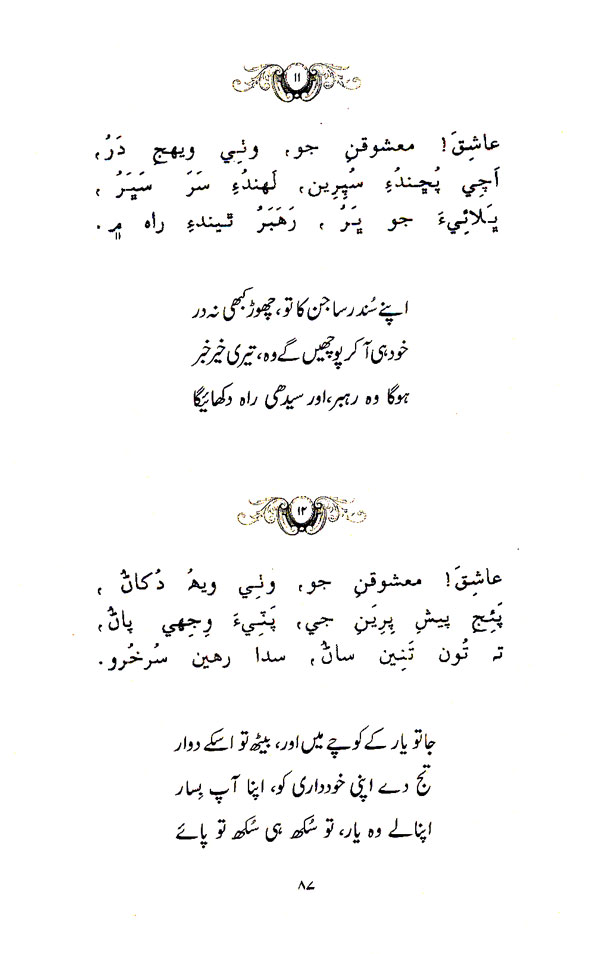 ۱۱
عاشِقَ! معشوقنِ جو، وٺِي ويهجِ دَرُ،
اَچِي پُڇندُءِ سُپِرِين، لَهندُءِ سَرَ سَڀَرُ،
ڀَلائِيءَ جو ڀَرُ، رَهَبَرُ ٿيندءِ راه ۾.
اپنے سُندر ساجن کا تو، چھوڑ کبھی نہ در
خود ہی آ کر پوچھیں گے وہ، تیری خیر خبر
ہوگا وہ رہبر، اور سیدھی راہ دکھائیگا
۱۲
عاشِقَ! معشوقنِ جو، وٺِي ويھُ دُڪانُ،
پَئِجِ پيشِ پِرِيَنِ جي، پَٽِيءَ وِجهِي پانُ،
تہ تُون تَنِين سانُ، سدا رهين سرخُرو.
جا تو یار کے کوچے میں اور، بیٹھ تو اسکے دوار
تج دے اپنی خودداری کو، اپنا آپ بِسار
اپنالے وہ یار، تو سُکھ ہی سُکھ تو پائے
۸۷